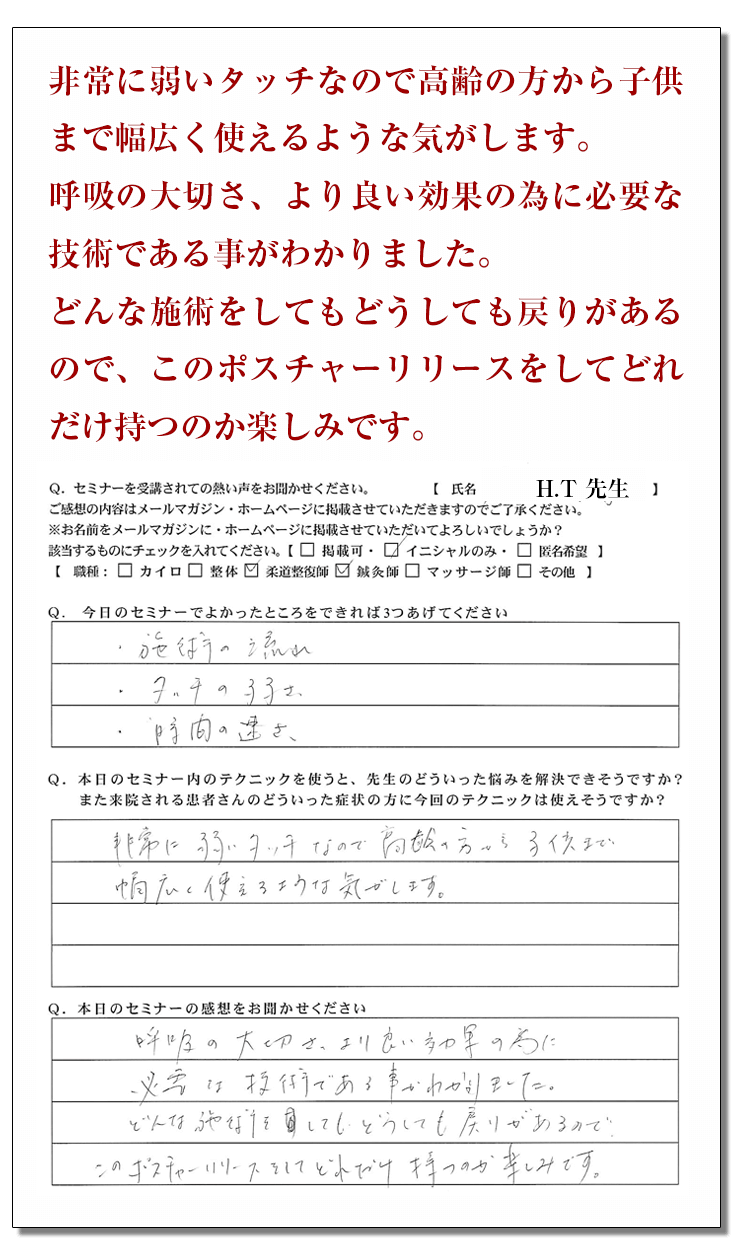 非常に弱いタッチなので高齢の方から子供
まで幅広く使えるような気がします。
呼吸の大切さ、より良い効果の為に必要な
技術である事がわかりました。
どんな施術をしてもどうしても戻りがある
ので、このポスチャーリリースをしてどれ
だけ持つのか楽しみです。
Q．セミナーを受講されての熱い声をお聞かせください。 【 氏名 H.T 先生 】
ご感想の内容はメールマガジン・ホームページに掲載させていただきますのでご了承ください。
※お名前をメールマガジンに・ホームページに掲載させていただいてよろしいでしょうか？
該当するものにチェックを入れてください。【 □ 掲載可・ ☑ イニシャルのみ・ □ 匿名希望 】
【 職種： □ カイロ □ 整体 ☑ 柔道整復師 ☑ 鍼灸師 □ マッサージ師 □ その他 】
Q． 今日のセミナーでよかったところをできれば3つあげてください
・施術の流れ
・タッチの弱さ、
・時間の速さ、
Q．本日のセミナー内のテクニックを使うと、先生のどういった悩みを解決できそうですか？
また来院される患者さんのどういった症状の方に今回のテクニックは使えそうですか？
非常に弱いタッチなので高齢の方から子供まで
幅広く使えるような気がします。
Q．本日のセミナーの感想をお聞かせください
呼吸の大切さ、より良い効果の為に
必要な技術である事がわかりました。
どんな施術をしてもどうしても戻りがあるので、
このポスチャーリリースをしてどれだけ持つのか楽しみです。